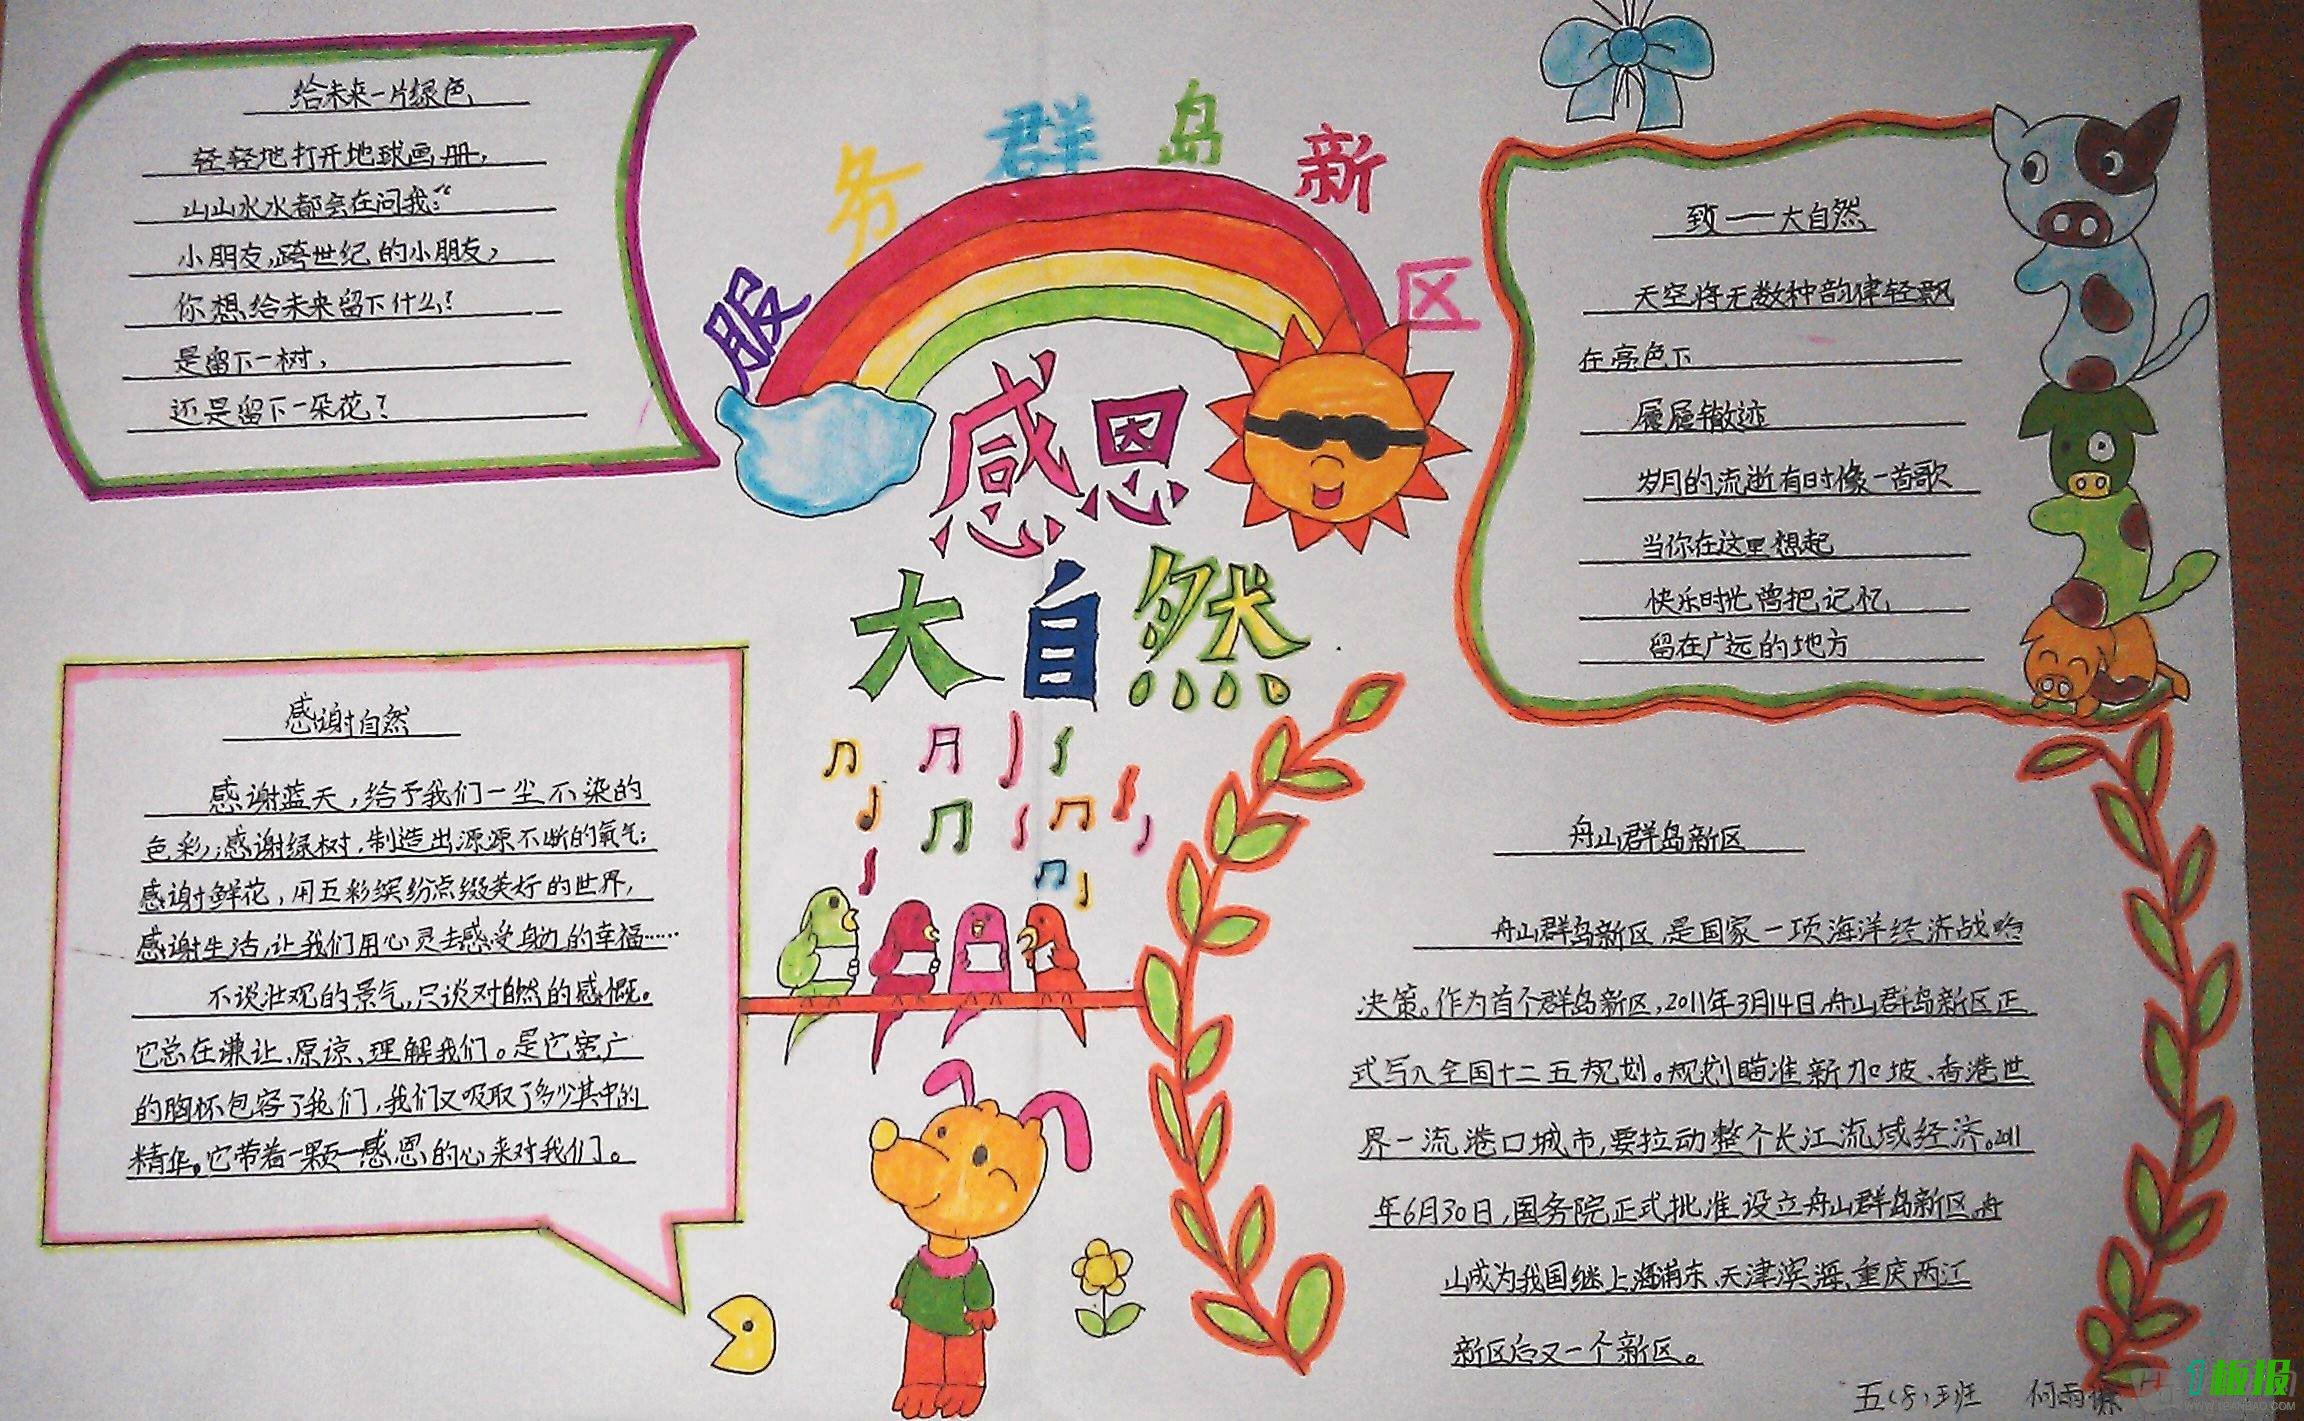 服务群岛新区
感恩
大自然
给未来一片绿色
轻轻地打开地球画册，
山山水水都会在问我：“
小朋友，跨世纪的小朋友，
你想给未来留下什么？
是留下一树，
还是留下一朵花？
致——大自然
天空将无数种韵律轻飘
在亮色下
履履辙迹
岁月的流逝有时像一首歌
当你在这里想起
快乐时光曾把记忆
留在广远的地方
感谢自然
感谢蓝天，给予我们一尘不染的
色彩；感谢绿树，制造出源源不断的氧气；
感谢鲜花，用五彩缤纷点缀美好的世界，
感谢生活，让我们用心灵去感受身边的幸福……
不谈壮观的景气，只谈对自然的感慨。
它总在谦让、原谅、理解我们。是它宽广
的胸怀包容了我们，我们又吸取了多少其中的
精华。它带着一颗感恩的心来对我们。
舟山群岛新区
舟山群岛新区，是国家一项海洋经济战略
决策。作为首个群岛新区，2011年3月14日，舟山群岛新区正
式写入全国十二五规划。规划瞄准新加坡、香港世
界一流港口城市，要拉动整个长江流域经济。2011
年6月30日，国务院正式批准设立舟山群岛新区，舟
山成为我国继上海浦东、天津滨海、重庆两江
新区后又一个新区。
五（8）班 何雨
1板报
WWW.1BANBAO.COM